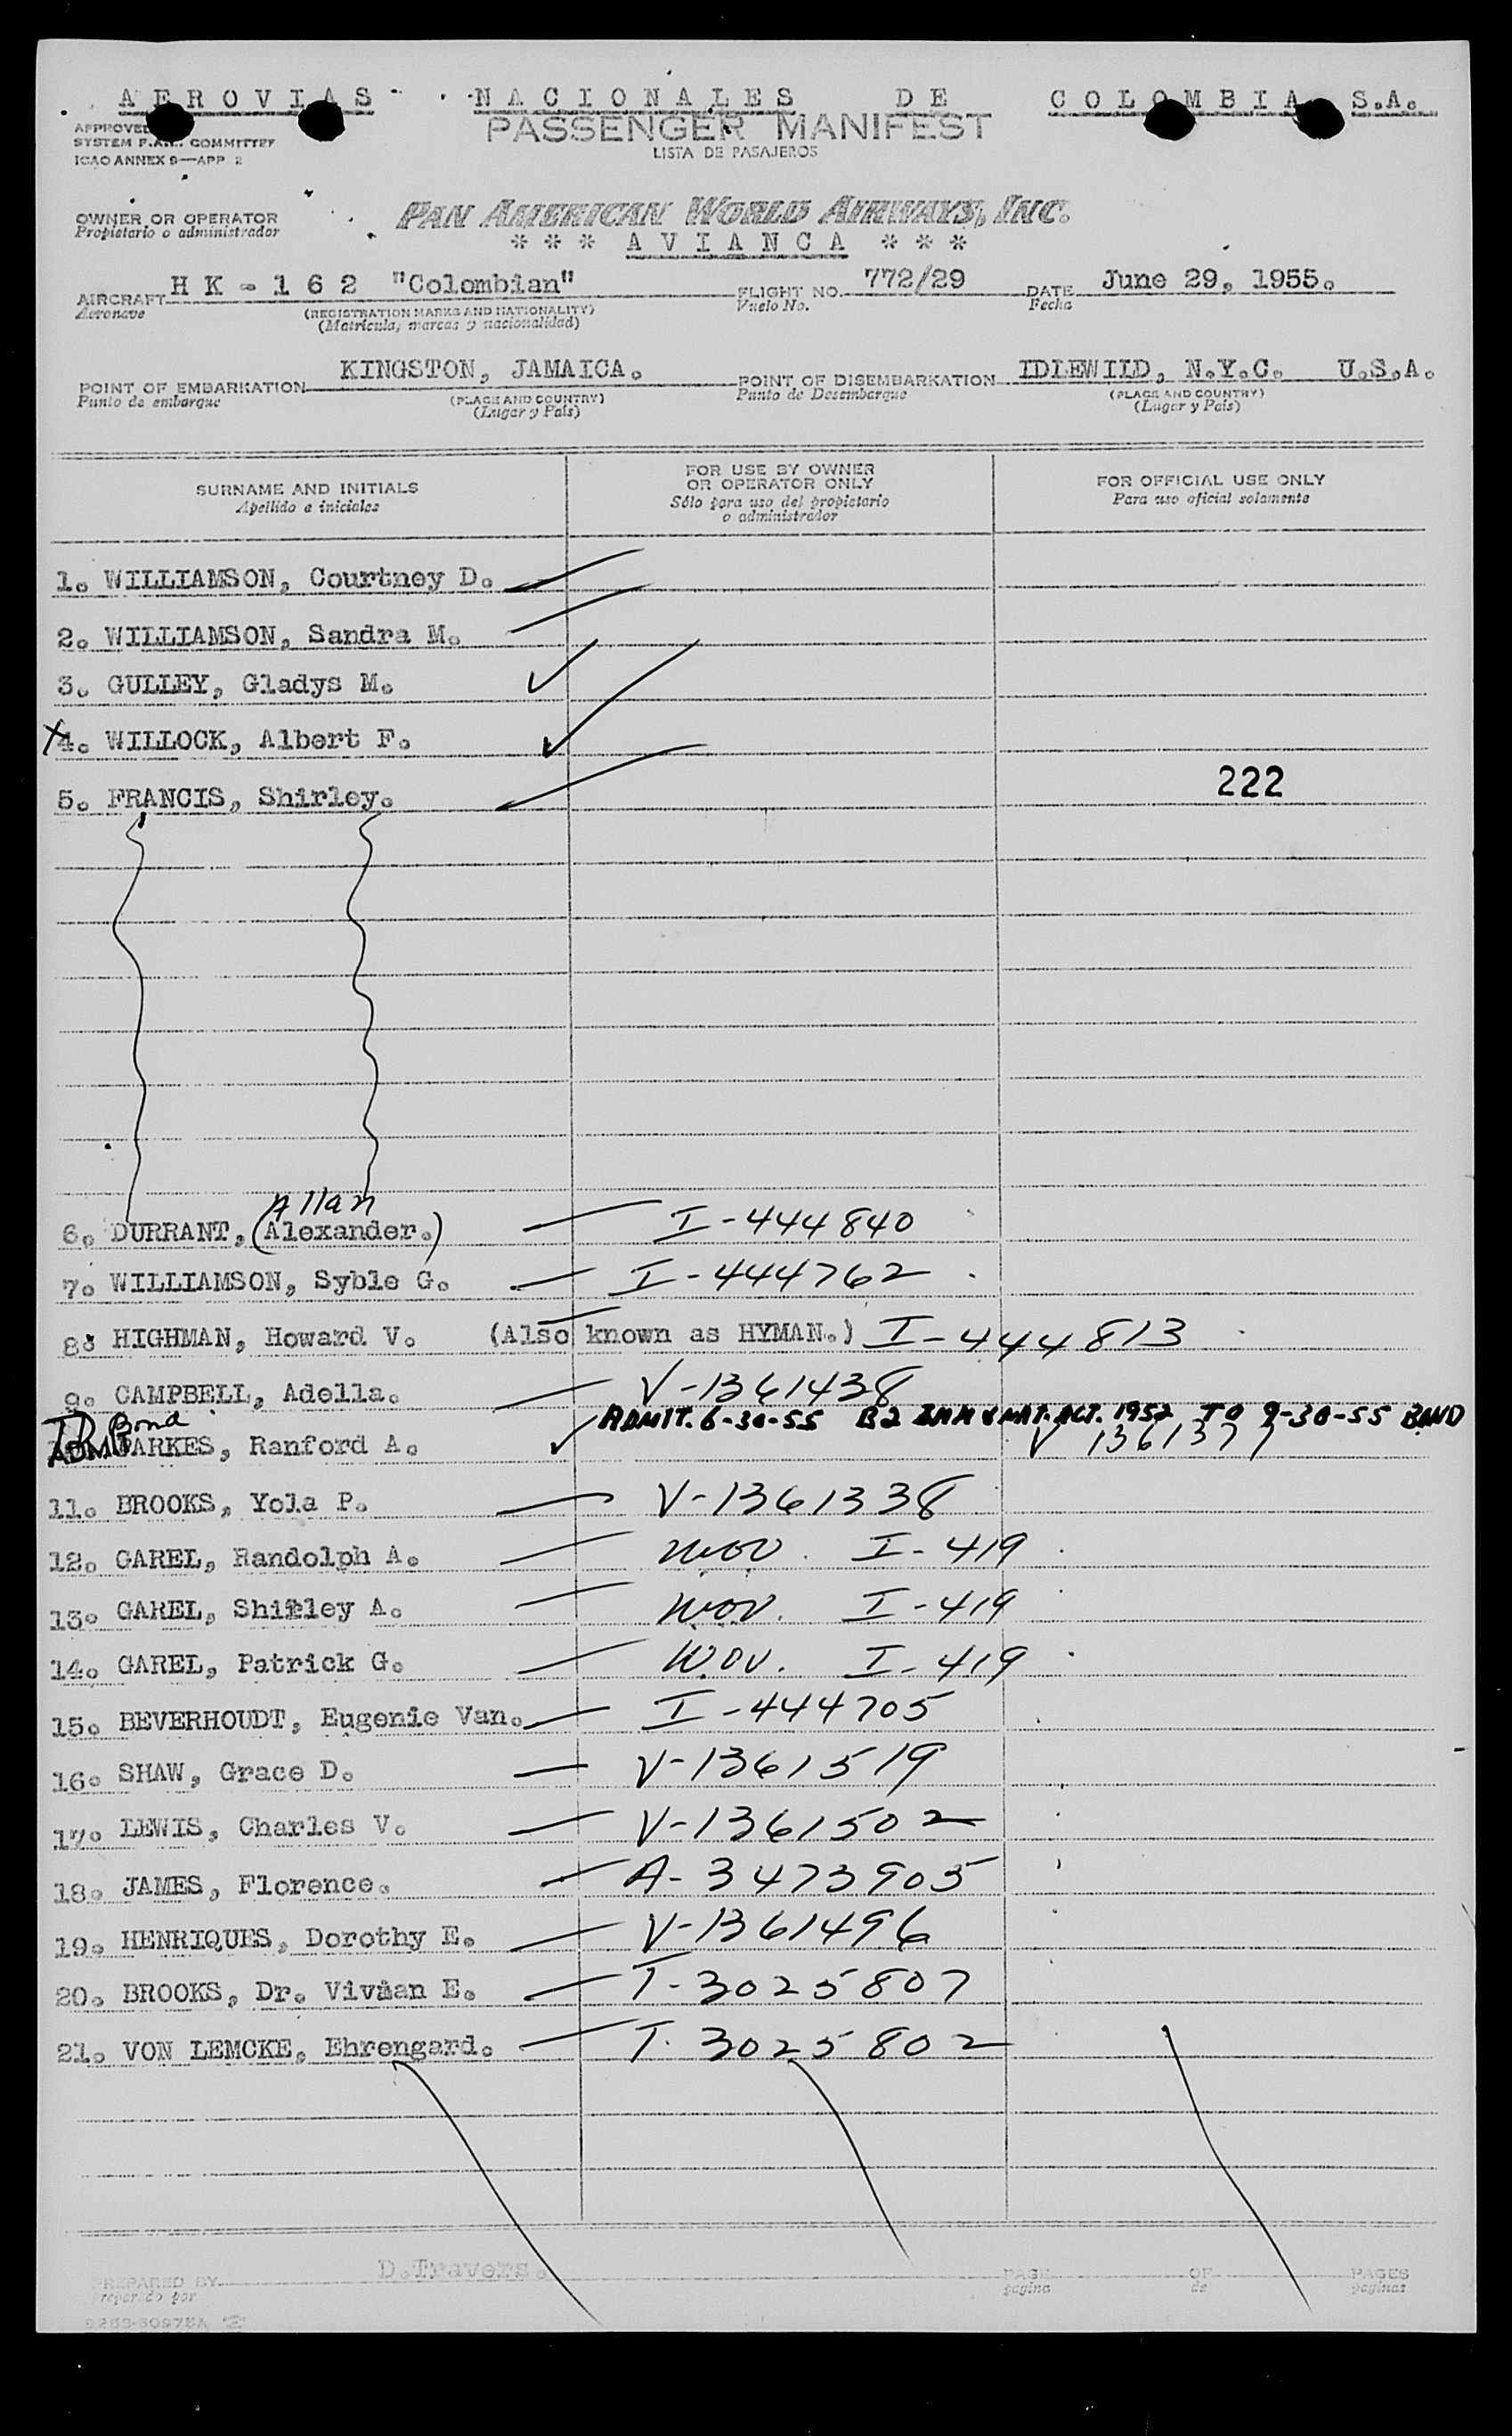 A E R O V I A S N A C I O N A L E S D E C O L O M B I A S.A.
PASSENGER MANIFEST
LISTA DE PASAJEROS
APPROVED
SYSTEM F.A.L. COMMITTEE
ICAO ANNEX 9—APP 2
OWNER OR OPERATOR
Propietario o administrador
PAN AMERICAN WORLD AIRWAYS, INC.
* * * A V I A N C A * * *
AIRCRAFT H K - 1 6 2 "Colombian" FLIGHT NO. 772/29 DATE June 29, 1955.
Aeronave (REGISTRATION MARKS AND NATIONALITY) Vuelo No. Fecha
(Matrícula, marcas y nacionalidad)
POINT OF EMBARKATION KINGSTON, JAMAICA. POINT OF DISEMBARKATION IDLEWILD, N.Y.C. U.S.A.
Punto de embarque (PLACE AND COUNTRY) Punto de Desembarque (PLACE AND COUNTRY)
(Lugar y País) (Lugar y País)
SURNAME AND INITIALS
Apellido e iniciales
FOR USE BY OWNER
OR OPERATOR ONLY
Sólo para uso del propietario
o administrador
FOR OFFICIAL USE ONLY
Para uso oficial solamente
1. WILLIAMSON, Courtney D.
2. WILLIAMSON, Sandra M.
3. GULLEY, Gladys M.
X4. WILLOCK, Albert F.
5. FRANCIS, Shirley. 222
Allan
6. DURRANT, (Alexander.) I-444840
7. WILLIAMSON, Syble G. I-444762
8. HIGHMAN, Howard V. (Also known as HYMAN.) I-444813
9. CAMPBELL, Adella. V-1361438
Bond ADMIT. 6-30-55 B2 IMM & NAT. ACT. 1952 TO 9-30-55 BOND
PARKES, Ranford A. V 1361377
11. BROOKS, Yola P. V-1361338
12. GAREL, Randolph A. WOV. I-419
13. GAREL, Shirley A. WOV. I-419
14. GAREL, Patrick G. W.OV. I-419
15. BEVERHOUDT, Eugenie Van. I-444705
16. SHAW, Grace D. V-1361519
17. LEWIS, Charles V. V-1361502
18. JAMES, Florence. A-3473905
19. HENRIQUES, Dorothy E. V-1361496
20. BROOKS, Dr. Vivian E. T-3025807
21. VON LEMCKE, Ehrengard. T-3025802
PREPARED BY D.Travers. PAGE OF PAGES
reparado por página de páginas